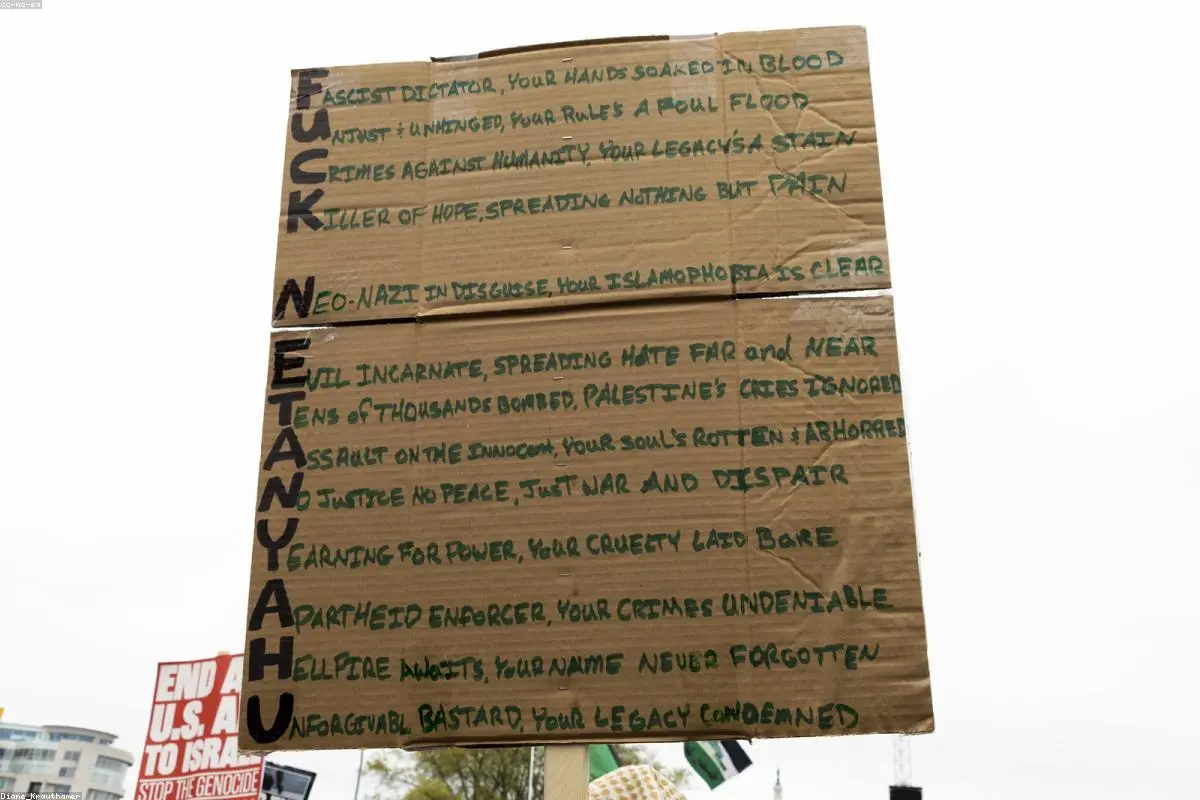 cc-nc-sa
FASCIST DICTATOR, YOUR HANDS SOAKED IN BLOOD
UNJUST & UNHINGED, YOUR RULE'S A FOUL FLOOD
CRIMES AGAINST HUMANITY, YOUR LEGACY'S A STAIN
KILLER OF HOPE, SPREADING NOTHING BUT PAIN
NEO-NAZI IN DISGUISE, YOUR ISLAMOPHOBIA IS CLEAR
EVIL INCARNATE, SPREADING HATE FAR and NEAR
TENS of THOUSANDS BOMBED, PALESTINE'S CRIES IGNORED
ASSAULT ON THE INNOCENT, YOUR SOUL'S ROTTEN & ABHORRED
NO JUSTICE NO PEACE, JUST WAR AND DISPAIR
YEARNING FOR POWER, YOUR CRUELTY LAID BARE
APARTHEID ENFORCER, YOUR CRIMES UNDENIABLE
HELLFIRE AWAITS, YOUR NAME NEVER FORGOTTEN
UNFORGIVABL BASTARD, YOUR LEGACY CONDEMNED
END A
U.S. A
TO ISRA
STOP THE GENOCIDE
Diane_Krauthamer